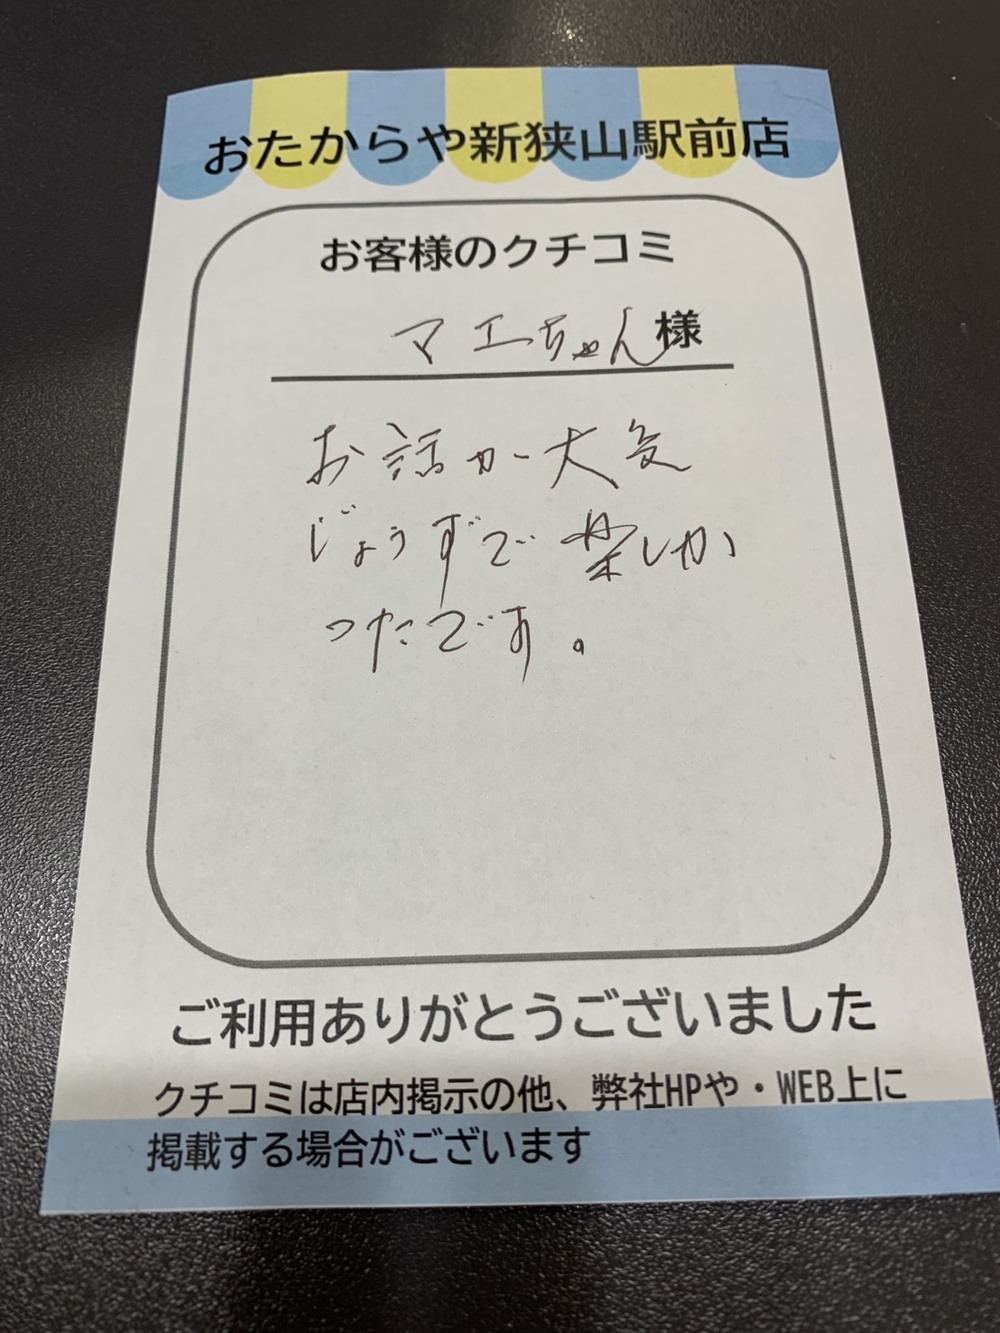 おたからや新狭山駅前店
お客様のクチコミ
マエちゃん様
お話が大変
じょうずで楽しか
ったです。
ご利用ありがとうございました
クチコミは店内掲示の他、弊社HPや・WEB上に
掲載する場合がございます